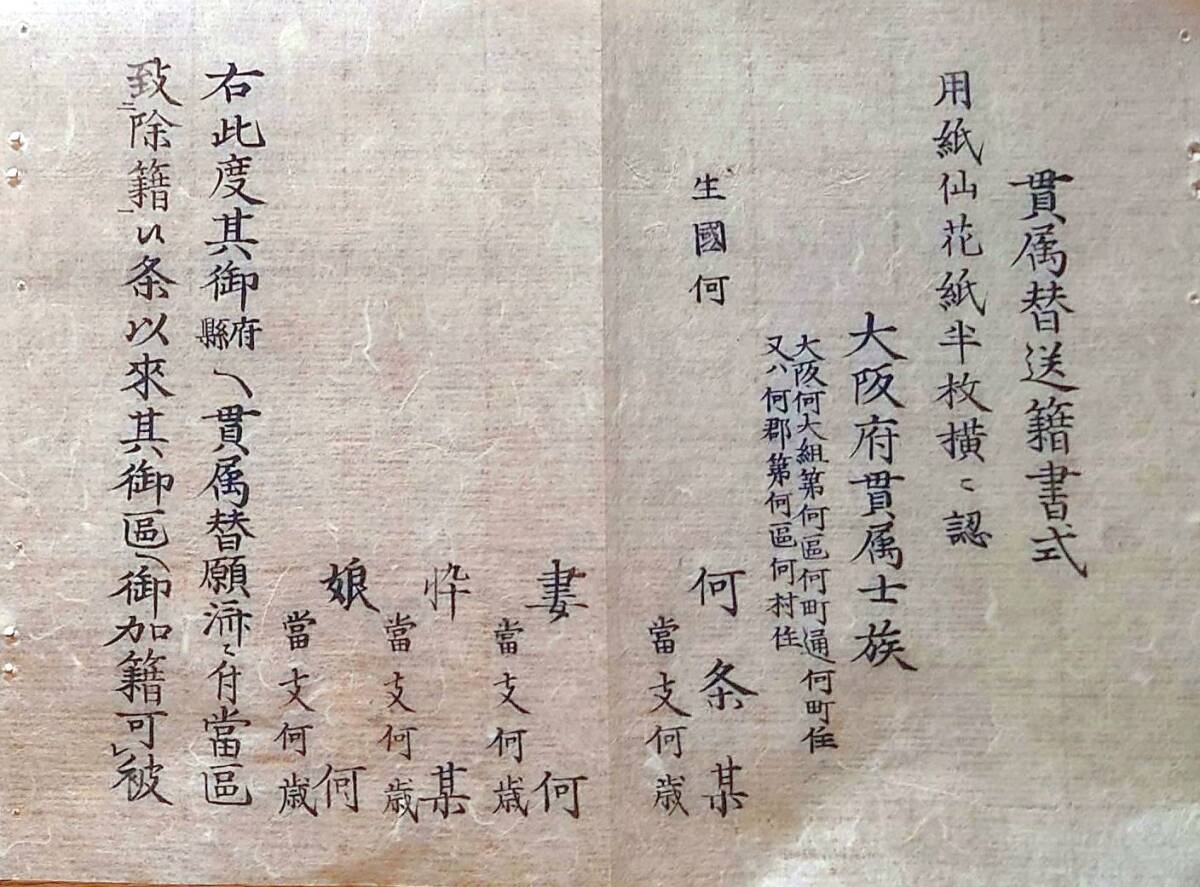 貫属替送籍書式
用紙仙花紙半枚横ニ認
大阪府貫属士族
大阪何大組第何區何町通何町住
又ハ何郡第何區何村住
生國何
何条某
當支何歳
妻 何
當支何歳
忰 某
當支何歳
娘 何
當支何歳
右此度其御府縣へ貫属替願済ニ付當區
致二除籍一候条以來其御區へ御加籍可レ被